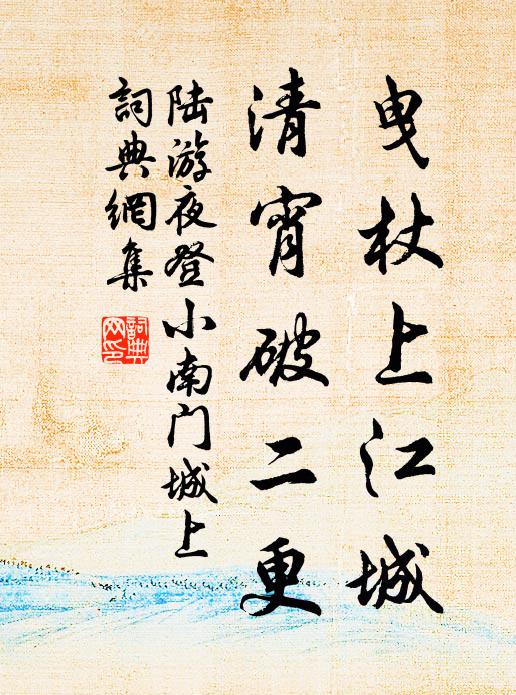 曳杖上江城
清宵破二更
陆游夜登小南门城上
詞典網集
詞典
网印